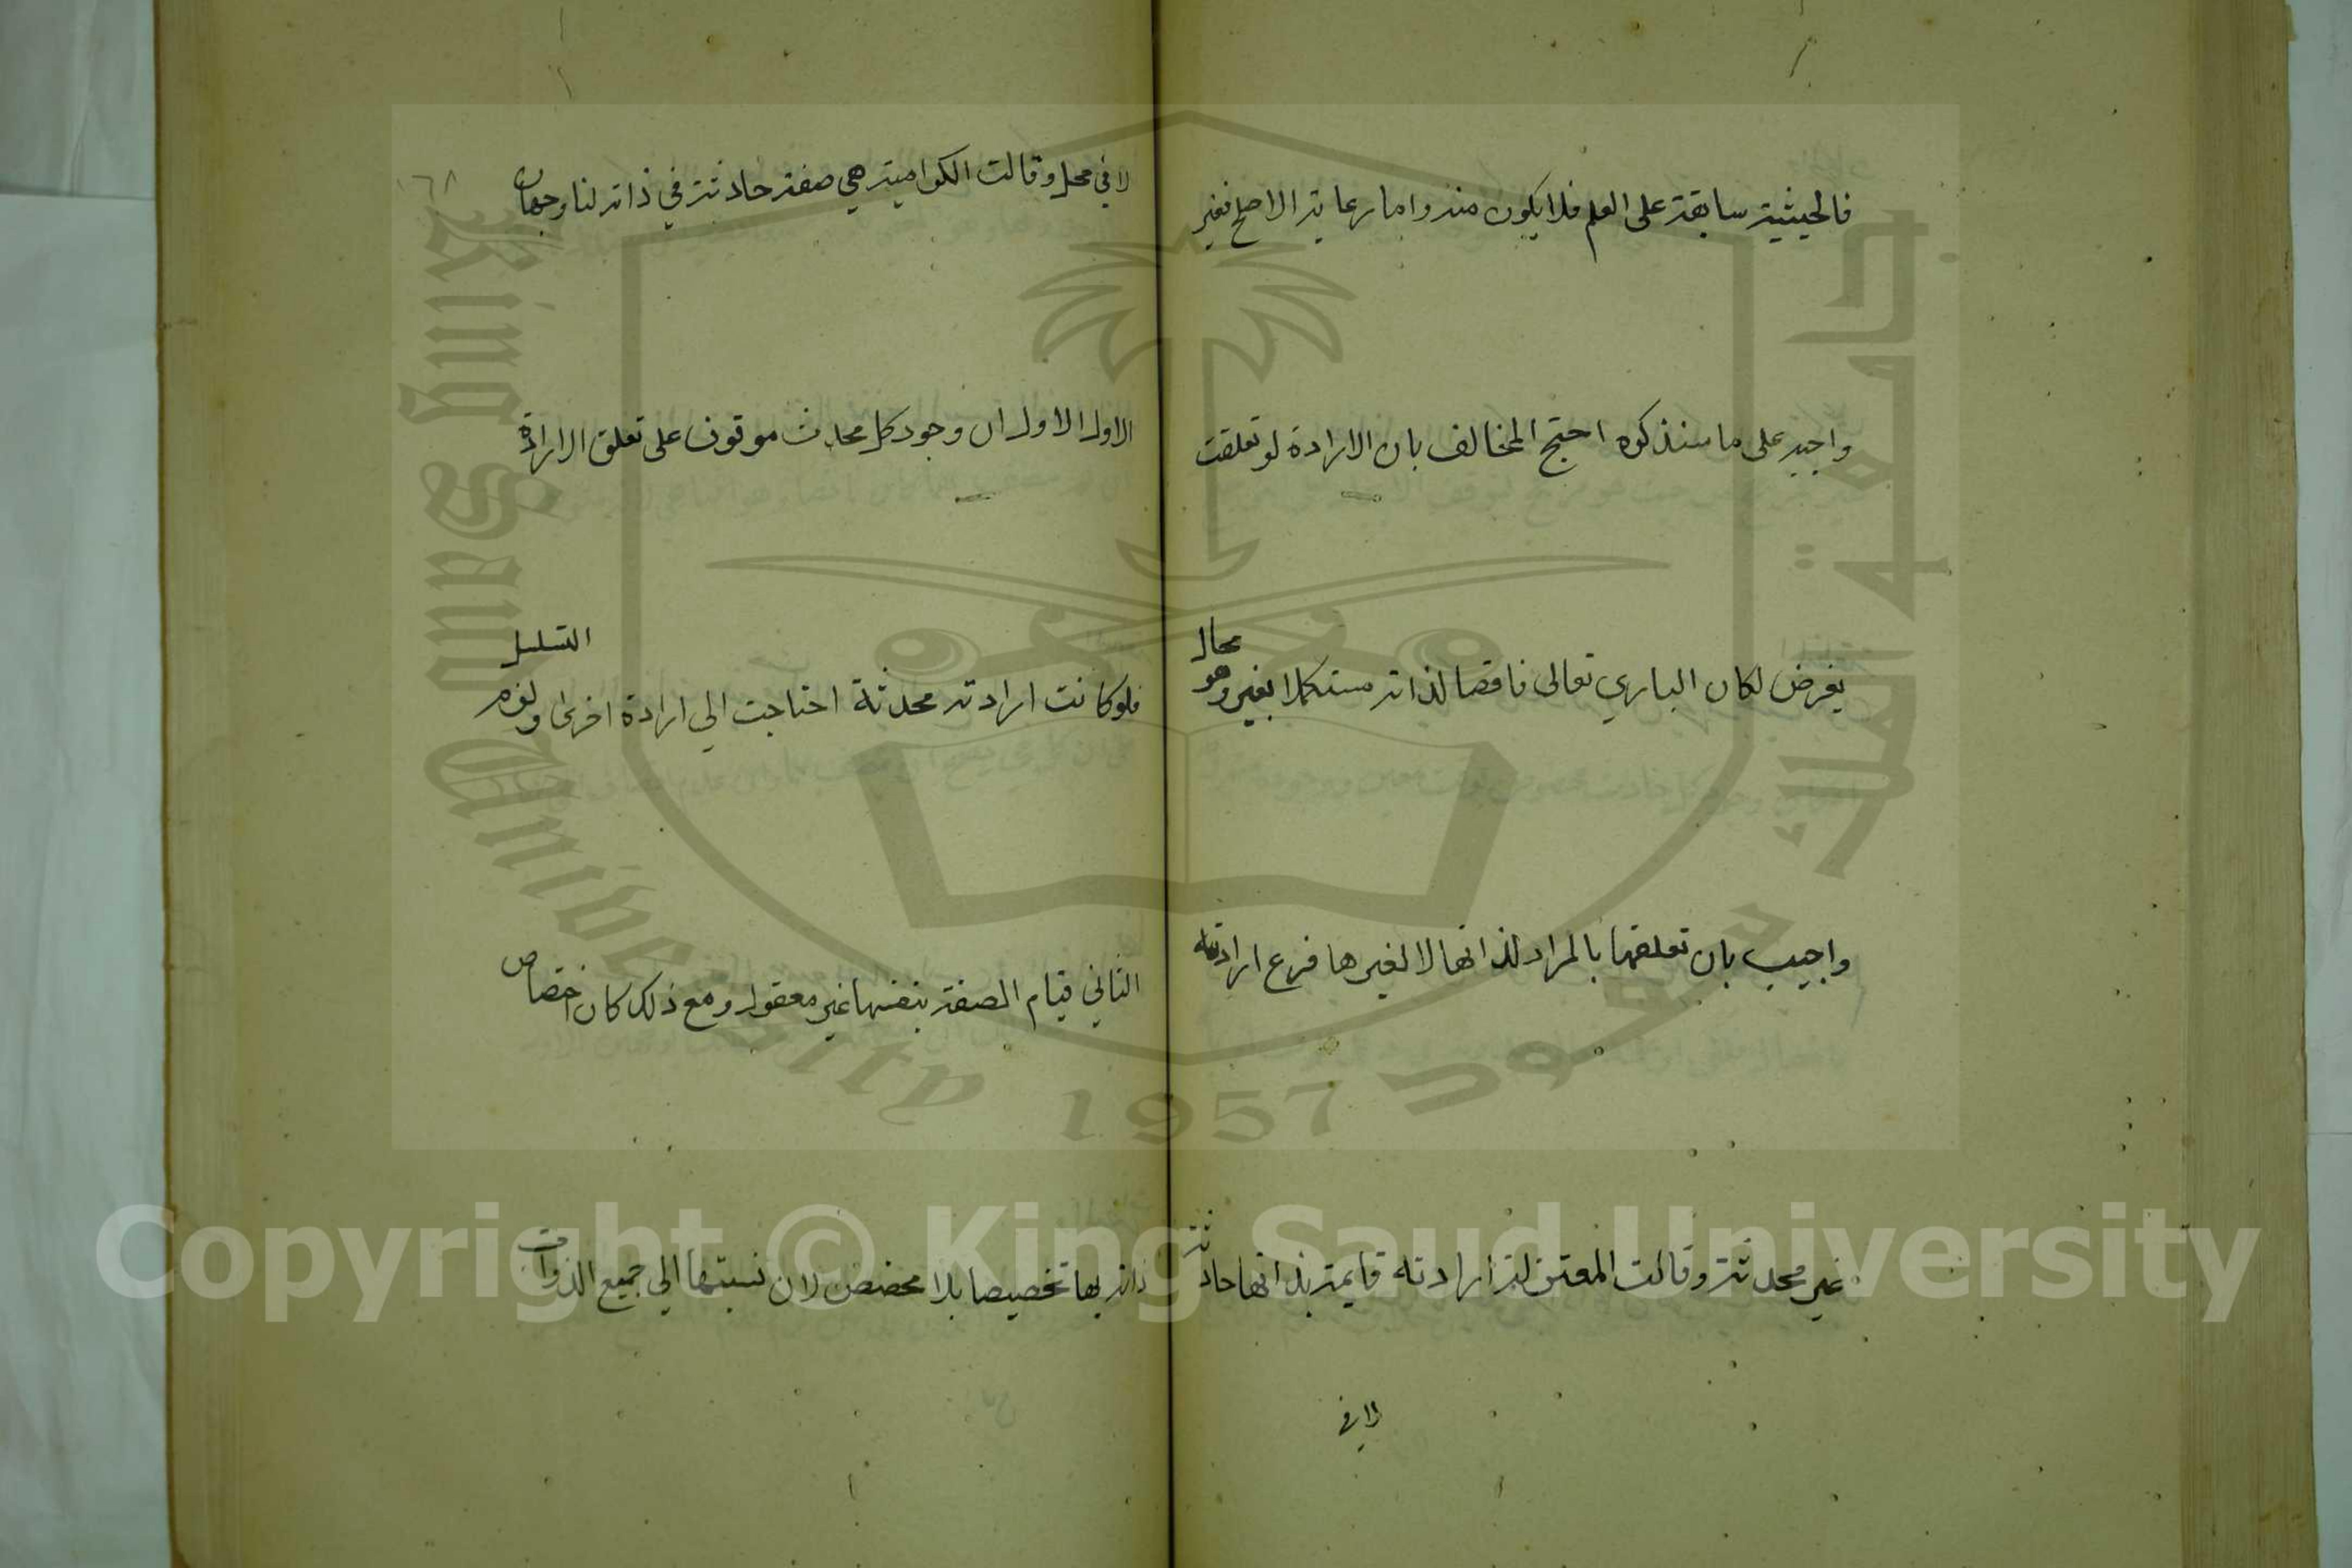 فالحيثية سابقة على العلم فلا يكون منه واما رعاية الاصلح فغير
واجبة على ما سنذكره احتج المخالف بان الارادة لو تعلقت
بغرض لكان الباري تعالى ناقصا لذاته مستكملا بغيره وهو محال
واجيب بان تعلقها بالمراد لذاتها لا لغيرها فرع ارادته
غير محدثة وقالت المعتزلة ارادته قايمة بذاتها حادثة
لا في
١٦٨
لا في محل وقالت الكرامية هي صفة حادثة في ذاته لنا وجهان
الاول الاول ان وجود كل محدث موقوف على تعلق الارادة
فلو كانت ارادته محدثة احتاجت الي ارادة اخرى ولزم التسلسل
الثاني قيام الصفة بنفسها غير معقول ومع ذلك كان اختصاص
ذاته بها تخصيصا بلا مخصص لان نسبتها الي جميع الذوات
Copyright © King Saud University
King Saud University
1957
جامعة الملك سعود